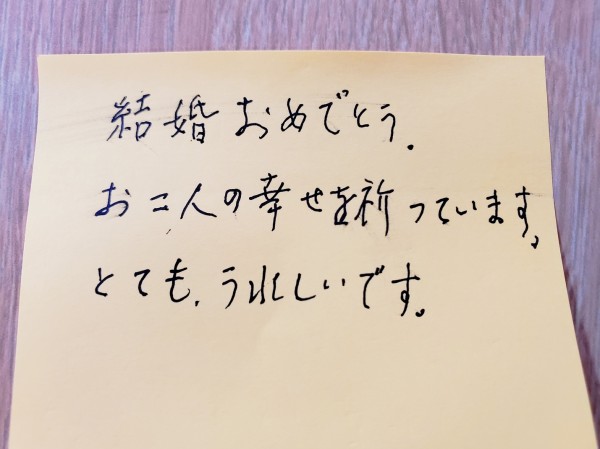 結婚おめでとう.
お二人の幸せを祈っています。
とても、うれしいです。